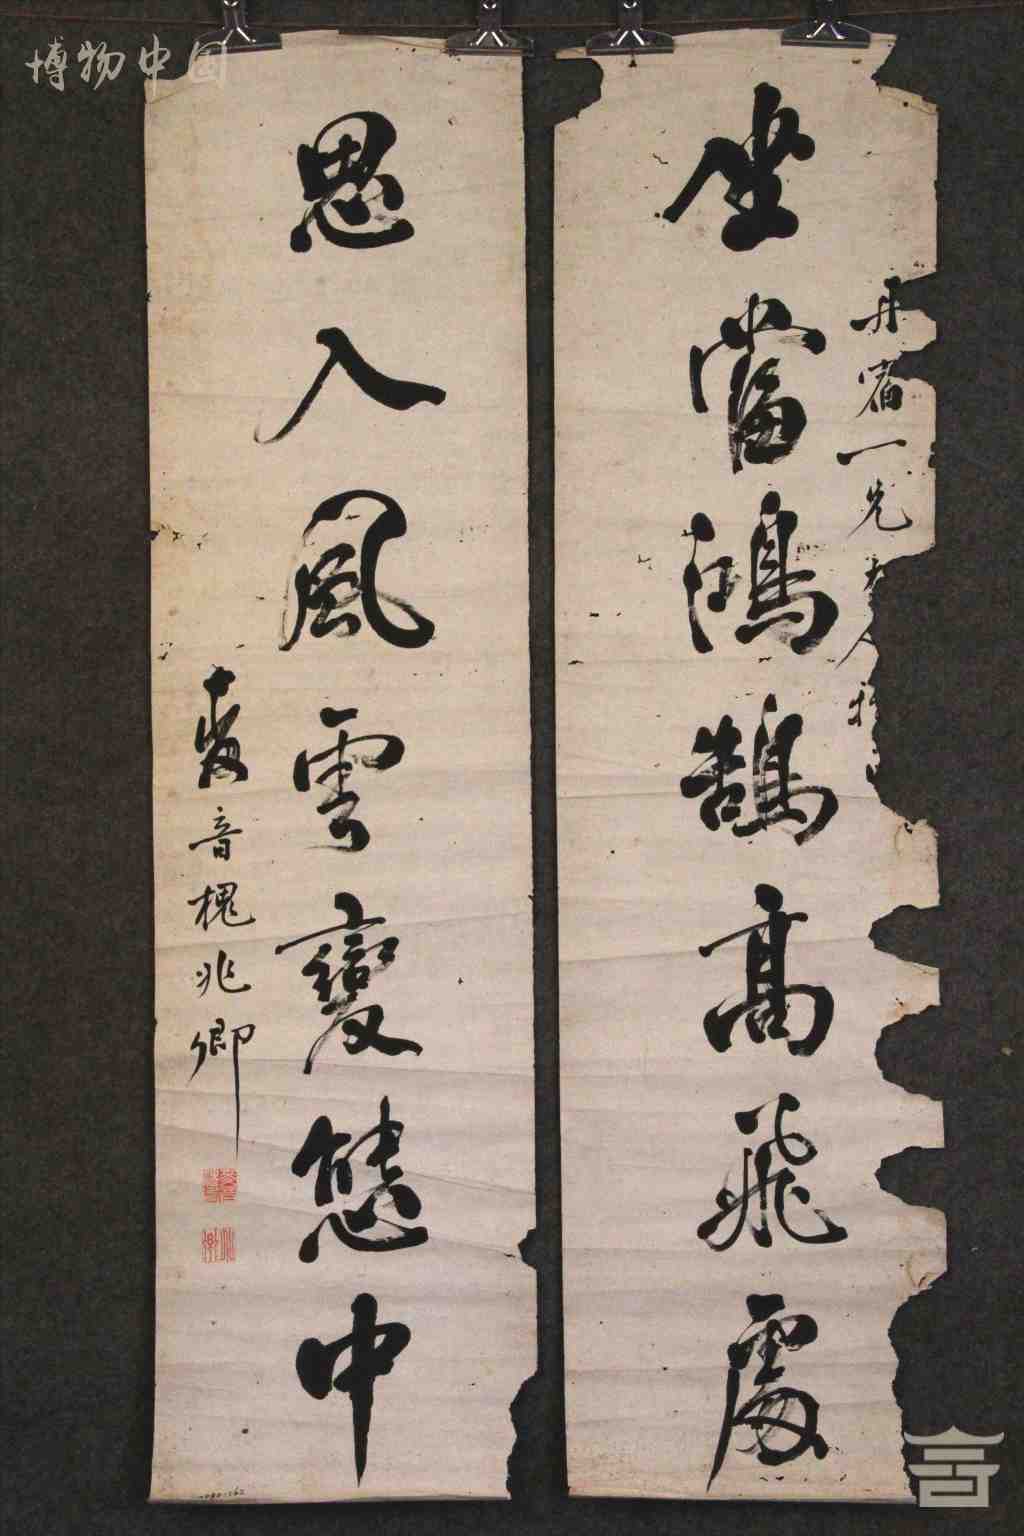 博物中国
坐當鴻鵠高飛處
丹宿一兄大人
思入風雲變態中
音槐兆卿